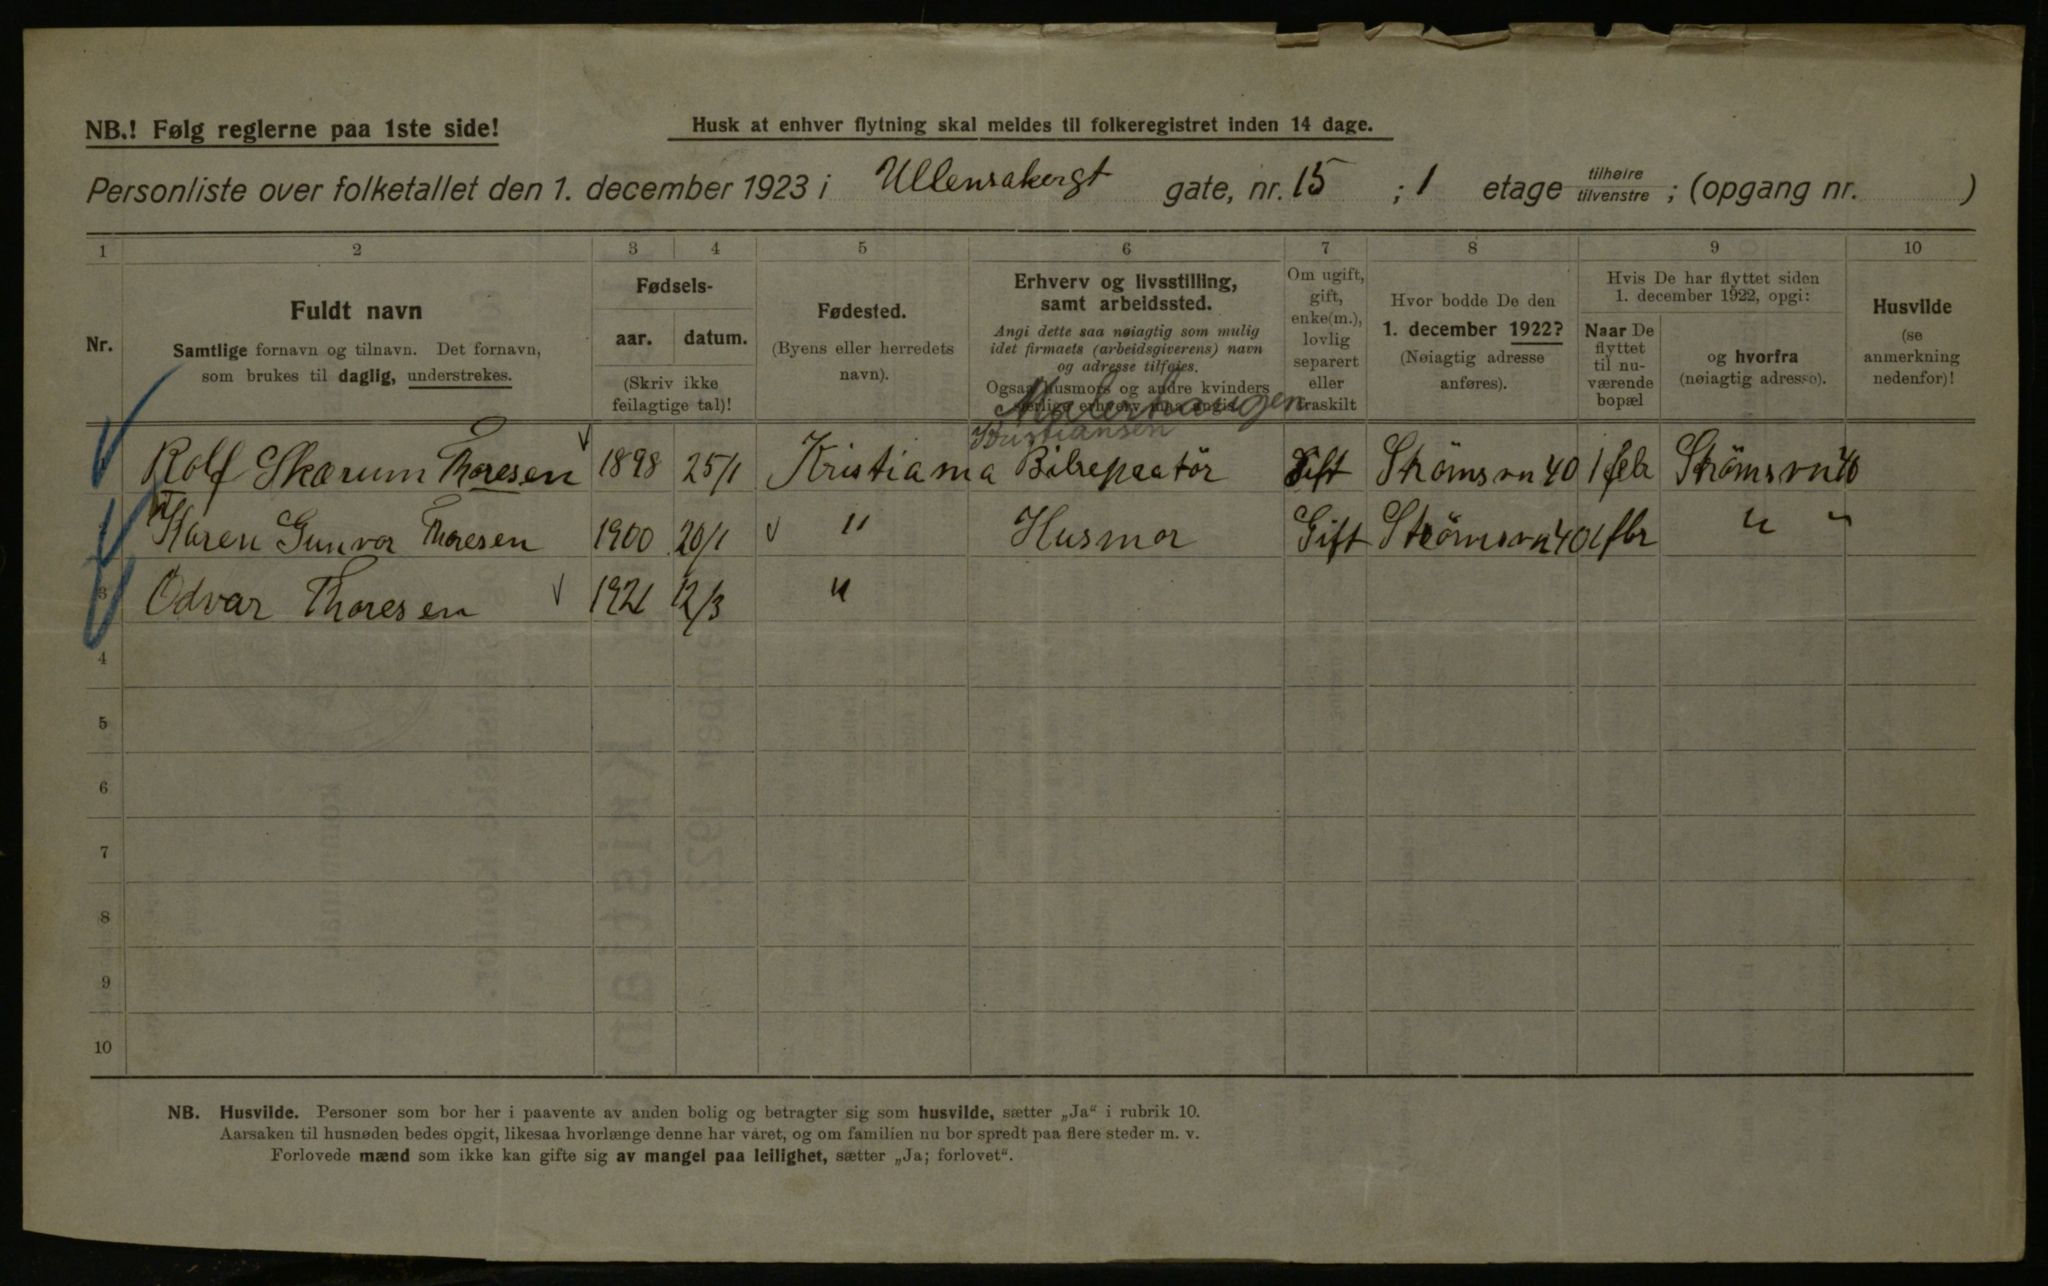 NB.! Følg reglerne paa 1ste side!
Husk at enhver flytning skal meldes til folkeregistret inden 14 dage.
Personliste over folketallet den 1. december 1923 i Ullensakergt gate, nr. 15 ; 1 etage tilhøire tilvenstre ; (opgang nr. )
1 2 3 4 5 6 7 8 9 10
Nr.
Fuldt navn
Samtlige fornavn og tilnavn. Det fornavn,
som brukes til daglig, understrekes.
Fødsels-
aar. datum.
(Skriv ikke
feilagtige tal)!
Fødested.
(Byens eller herredets
navn).
Erhverv og livsstilling,
samt arbeidssted.
Angi dette saa nøiagtig som mulig
idet firmaets (arbeidsgiverens) navn
og adresse tilføies.
Ogsaa husmors og andre kvinders
særlige erhverv maa angis.
Om ugift,
gift,
enke(m.),
lovlig
separert
eller
fraskilt
Hvor bodde De den
1. december 1922?
(Nøiagtig adresse
anføres).
Hvis De har flyttet siden
1. december 1922, opgi:
Naar De
flyttet
til nu-
værende
bopæl
og hvorfra
(nøiagtig adresse).
Husvilde
(se
anmerkning
nedenfor)!
Malerhaugen
Kristiansen
Rolf Skærum Thoresen 1898 25/1 Kristiania Bilrepaatör Gift Strömsvn 40 1 febr Strömsvn 40
Karen Gunvor Thoresen 1900 20/1 " Husmor Gift Strömsvn 40 1 fbr " "
3 Odvar Thoresen 1921 12/3 "
4
5
6
7
8
9
10
NB. Husvilde. Personer som bor her i paavente av anden bolig og betragter sig som husvilde, sætter „Ja“ i rubrik 10.
Aarsaken til husnøden bedes opgit, likesaa hvorlænge denne har varet, og om familien nu bor spredt paa flere steder m. v.
Forlovede mænd som ikke kan gifte sig av mangel paa leilighet, sætter „Ja; forlovet“.